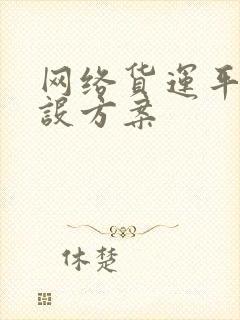 网络货运平
設方案
休楚